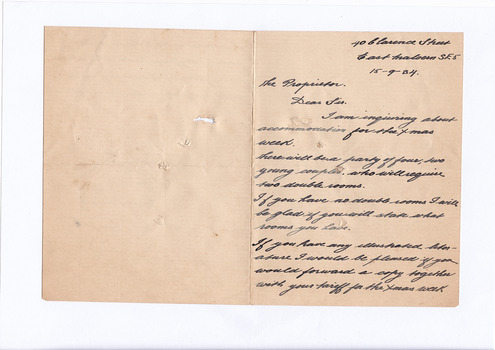 40 Clarence Street
East Malvern SE5
15-9-34.
The Proprietor.
Dear Sir.
I am inquiring about
accommodation for the Xmas
week.
There will be a party of four, two
young couples, who will require
two double rooms.
If you have no double rooms I will
be glad if you will state what
rooms you have.
If you have any illustrated liter-
ature I would be pleased if you
would forward a copy together
with your tariff for the Xmas week